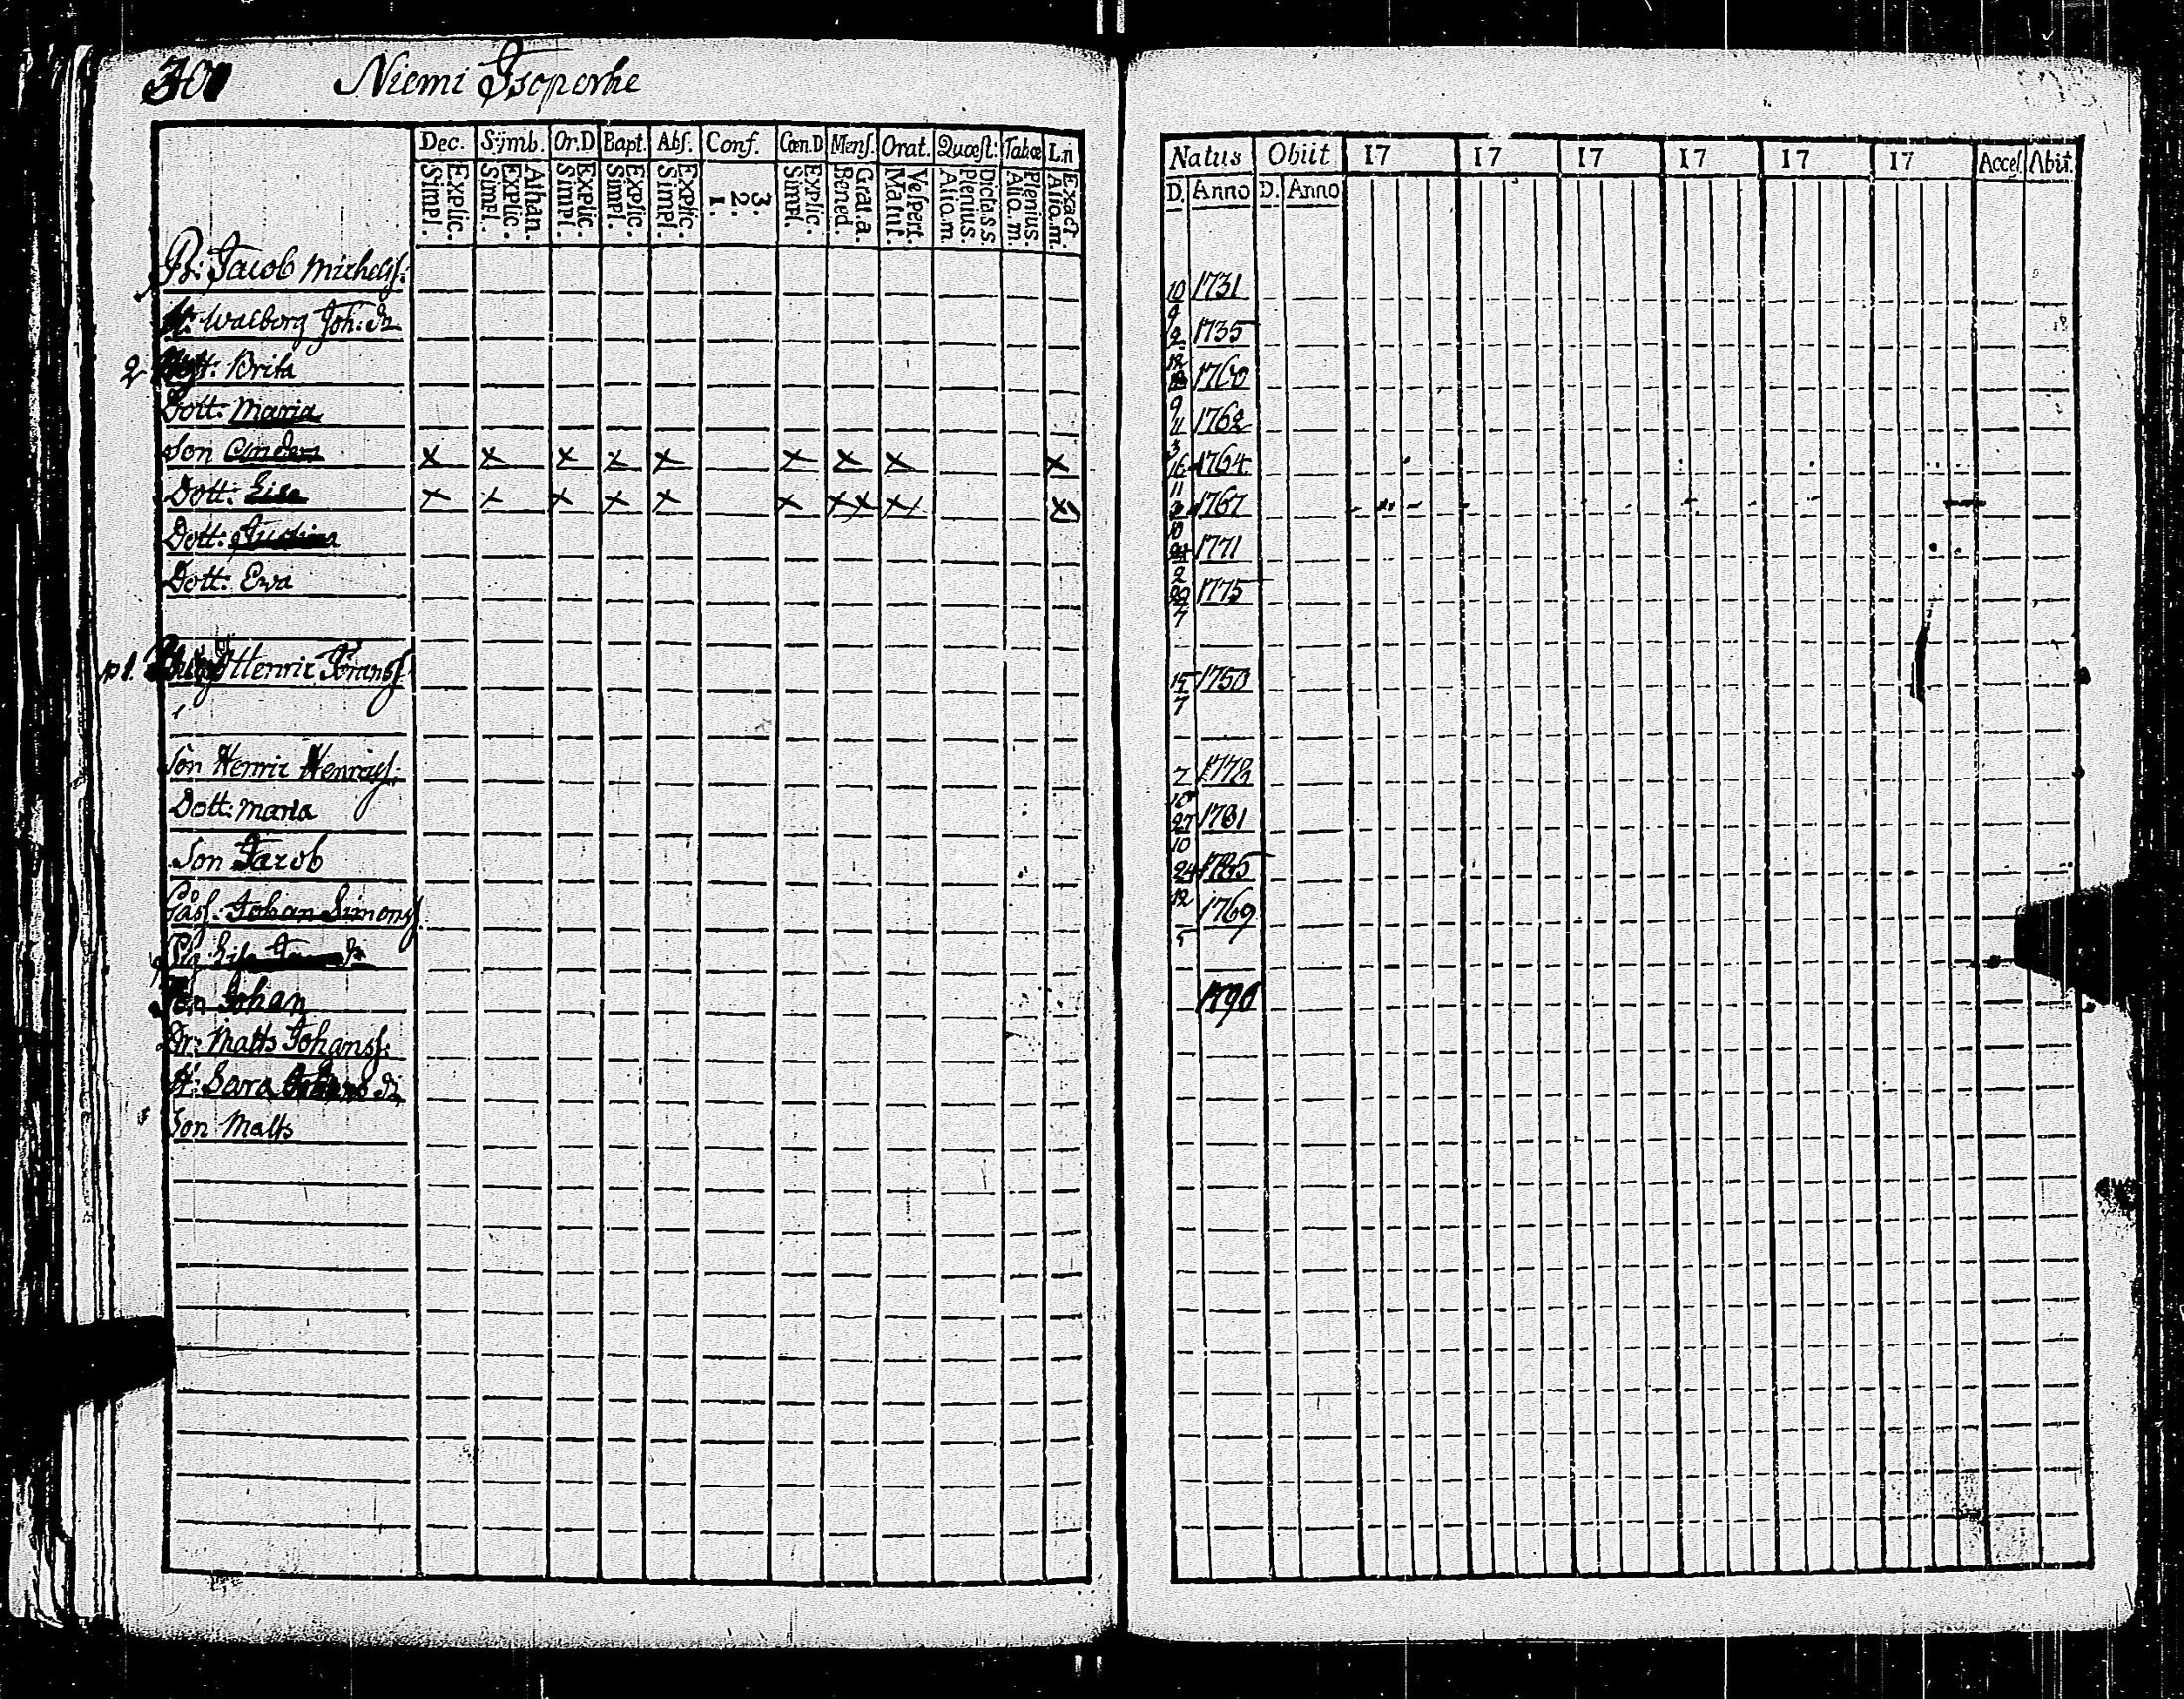 301 Niemi Isoperhe
Dec. Sÿmb. Or.D Bapt. Abs. Conf. Cœn.D Mens. Orat. Quæst: Tabœ L.n
Explic. Simpl. Athan. Explic. Simpl. Explic. Simpl. Explic. Simpl. Explic. Simpl. 3. 2. 1. Explic. Simpl. Grat.a. Bened. Vespert. Matut. Dicta.s.s. Plenius. Alio.m. Plenius. Alio.m. Exact. Alio.m.
Natus Obiit 17 17 17 17 17 17 Accef. Abit.
D. Anno D. Anno
B: Jacob Michelss: 10 9 1731
H: Walborg Joh: dr 2 12 1735
2 Brita 9 1760
Dott: Maria 11 3 1762
Son Anders x x x x x x x x x 16 11 1764
Dott: Lisa x x x x x x xx x x 10 1767
Dott: 21 2 1771
Dott: Ewa 29 7 1775
Henric Franss 15 7 1750
Son Henric Henricss. 7 10 1778
Dott: Maria 27 10 1781
Son Jacob 24 12 1785
Gåss. Johan Simonss 5 1769
Pig. Lisa
Son Johan 1790
Dr: Matts Johanss:
H: Sara dr
Son Matts